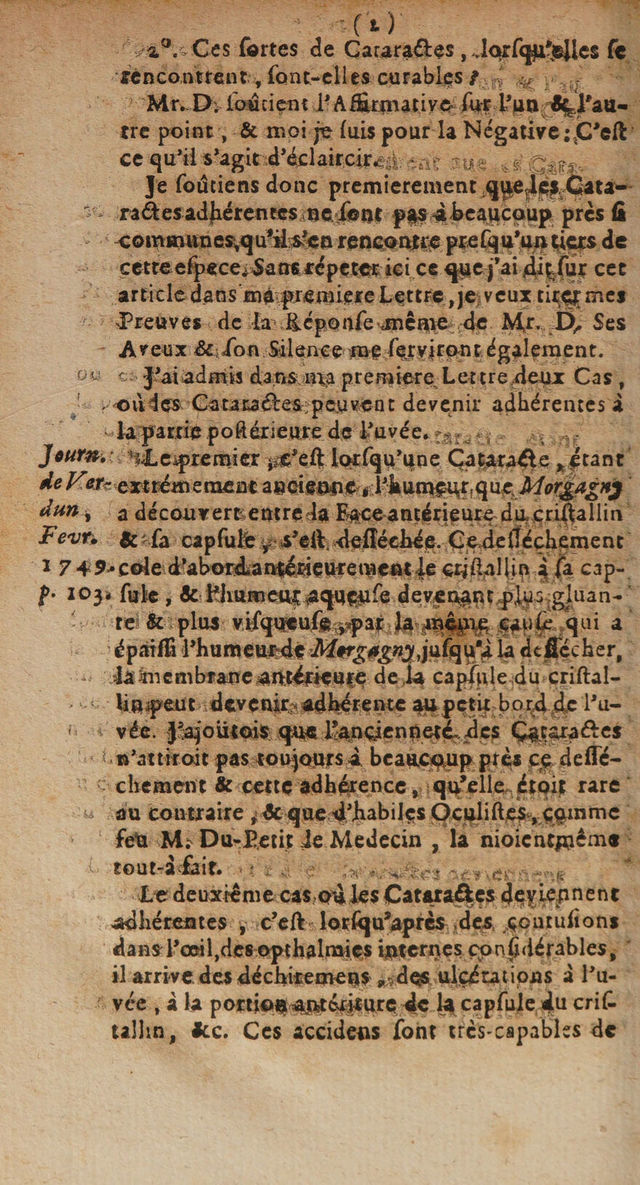 (2)
2°. Ces ſortes de Cataractes, lorſqu'elles ſe
rencontrent, ſont-elles curables?
Mr. D. ſoûtient l'Affirmative ſur l'un & l'au-
tre point, & moi je ſuis pour la Négative: C'eſt
ce qu'il s'agit d'éclaircir.
Je ſoûtiens donc premierement que les Cata-
ractes adhérentes ne ſont pas à beaucoup près ſi
communes, qu'il s'en rencontre preſqu'un tiers de
cette eſpece. Sans répeter ici ce que j'ai dit ſur cet
article dans ma premiere Lettre, je veux tirer mes
Preuves de la Réponſe même de Mr. D. Ses
Aveux & ſon Silence me ſerviront également.
J'ai admis dans ma premiere Lettre deux Cas,
où les Cataractes peuvent devenir adhérentes à
la partie poſtérieure de l'uvée.
Journ. Le premier, c'eſt lorſqu'une Cataracte, étant
de Ver- extrémement ancienne, l'humeur que Morgagny
dun, a découvert entre la Face antérieure du criſtallin
Fevr. & ſa capſule, s'eſt deſſéchée. Ce deſſéchement
1749. cole d'abord antérieurement le criſtallin à ſa cap-
p. 103. ſule, & l'humeur aqueuſe devenant plus gluan-
te & plus viſqueuſe, par la même cauſe qui a
épaiſſi l'humeur de Morgagny, juſqu'à la deſſécher,
la membrane antérieure de la capſule du criſtal-
lin peut devenir adhérente au petit bord de l'u-
vée. J'ajoûtois que l'ancienneté des Cataractes
n'attiroit pas toujours à beaucoup près ce deſſé-
chement & cette adhérence, qu'elle étoit rare
au contraire, & que d'habiles Oculiſtes, comme
feu M. Du-Petit le Medecin, la nioient même
tout-à fait.
Le deuxiême cas où les Cataractes deviennent
adhérentes, c'eſt lorſqu'après des contuſions
dans l'œil, des opthalmies internes conſidérables,
il arrive des déchiremens, des ulcérations à l'u-
vée, à la portion antérieure de la capſule du criſ-
tallin, &c. Ces accidens ſont très-capables de